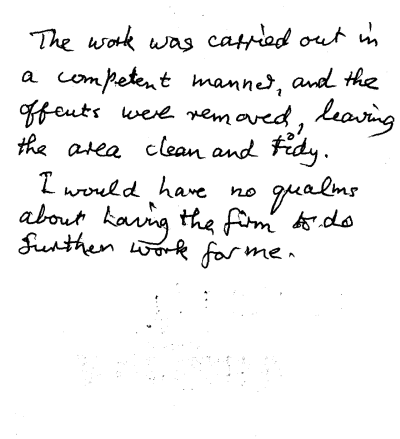 The work was carried out in
a competent manner, and the
offcuts were removed, leaving
the area clean and tidy.
I would have no qualms
about having the firm to do
further work for me.